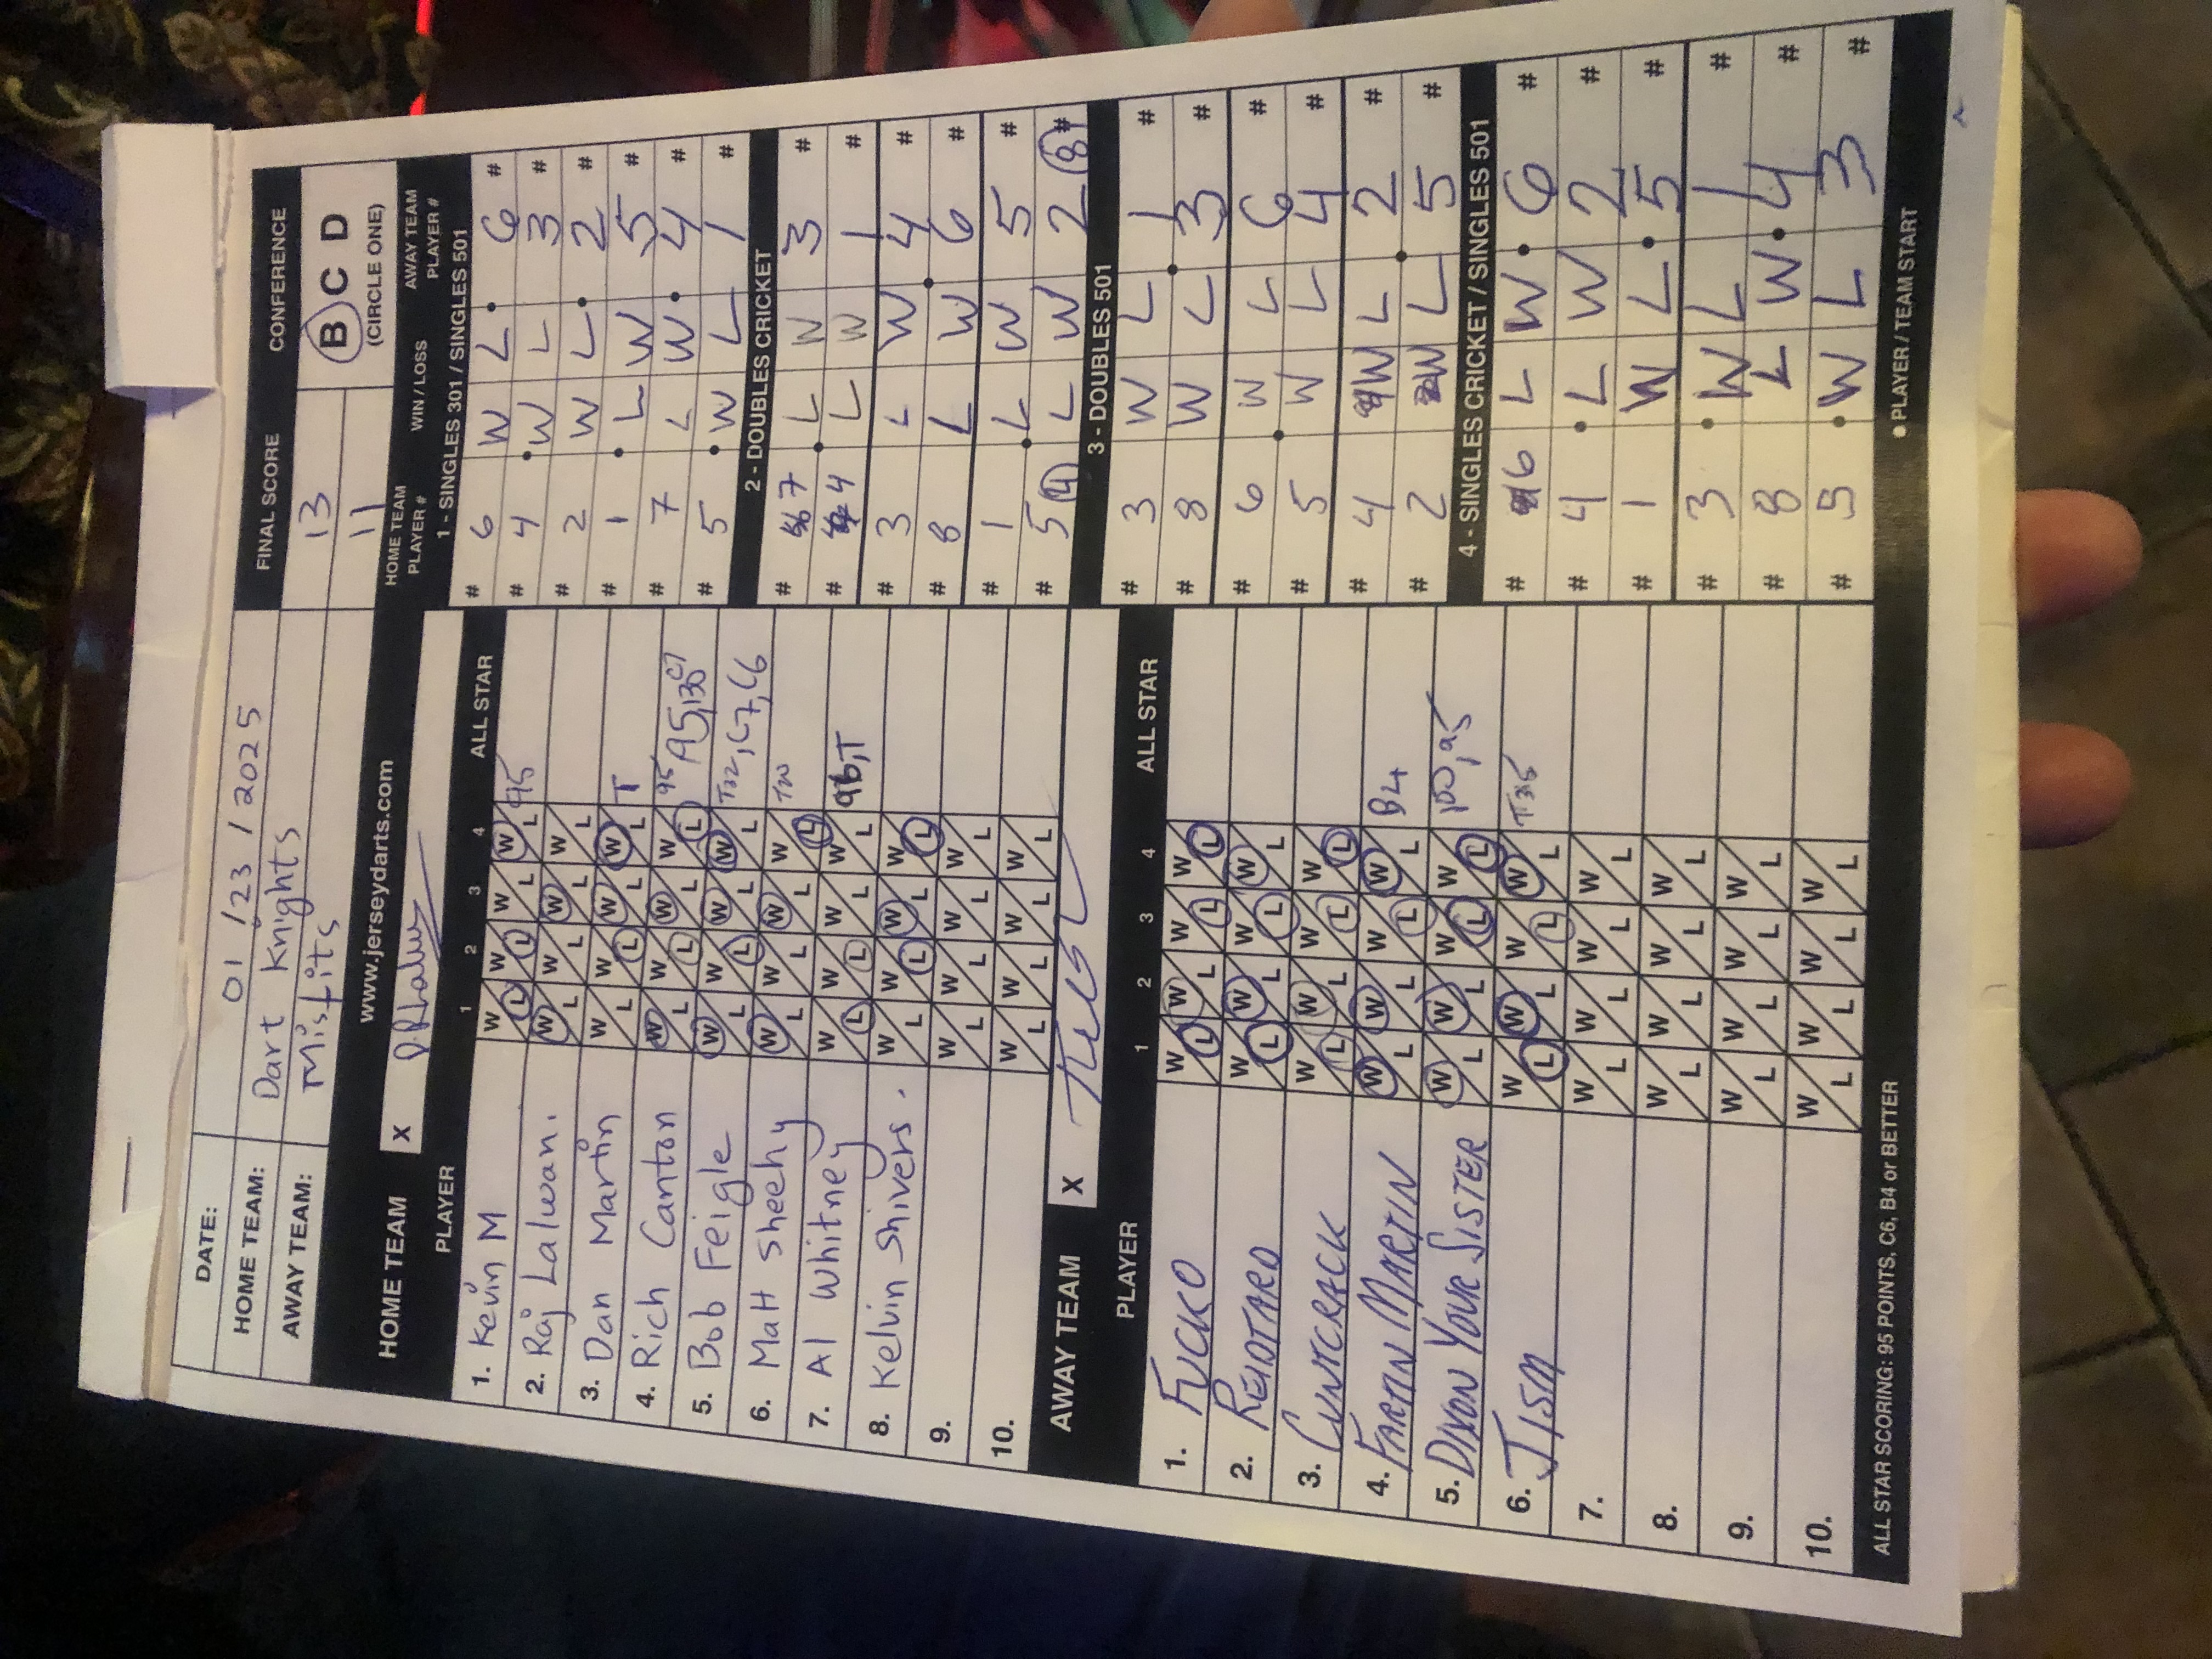 DATE: 01/23/2025
HOME TEAM: Dart Knights
AWAY TEAM: Misfits
FINAL SCORE
13
11
CONFERENCE
B C D
(CIRCLE ONE)
www.jerseydarts.com
HOME TEAM X
PLAYER 1 2 3 4 ALL STAR
1. Kevin M W L W L W L W L 95
2. Raj Lalwani. W L W L W L W L
3. Dan Martin W L W L W L W L T
4. Rich Canton W L W L W L W L 95
5. Bob Feigle W L W L W L W L
6. Matt Sheehy W L W L W L W L
7. Al Whitney W L W L W L W L
8. Kelvin Shivers. W L W L W L W L
9. W L W L W L W L
10. W L W L W L W L
AWAY TEAM X
PLAYER 1 2 3 4 ALL STAR
1. FUCKO W L W L W L W L
2. W L W L W L W L
3. CUNTCRACK W L W L W L W L
4. FARTIN MARTIN W L W L W L W L B4
5. DIXON YOUR SISTER W L W L W L W L 100, 95
6. JISM W L W L W L W L
7. W L W L W L W L
8. W L W L W L W L
9. W L W L W L W L
10. W L W L W L W L
ALL STAR SCORING: 95 POINTS, C6, B4 or BETTER
HOME TEAM PLAYER # WIN / LOSS AWAY TEAM PLAYER #
1 - SINGLES 301 / SINGLES 501
# 6 W L 6 #
# 4 W L 3 #
# 2 W L 2 #
# 1 L W 5 #
# 7 L W 4 #
# 5 W L 1 #
2 - DOUBLES CRICKET
# 7 L W 3 #
# 4 L W 1 #
# 3 L W 4 #
# 8 L W 6 #
# 1 L W 5 #
# 5 4 L W 2 8 #
3 - DOUBLES 501
# 3 W L 1 #
# 8 W L 3 #
# 6 W L 6 #
# 5 W L 4 #
# 4 W L 2 #
# 2 W L 5 #
4 - SINGLES CRICKET / SINGLES 501
# 6 L W 6 #
# 4 L W 2 #
# 1 W L 5 #
# 3 W L 1 #
# 8 L W 4 #
# 5 W L 3 #
● PLAYER / TEAM START